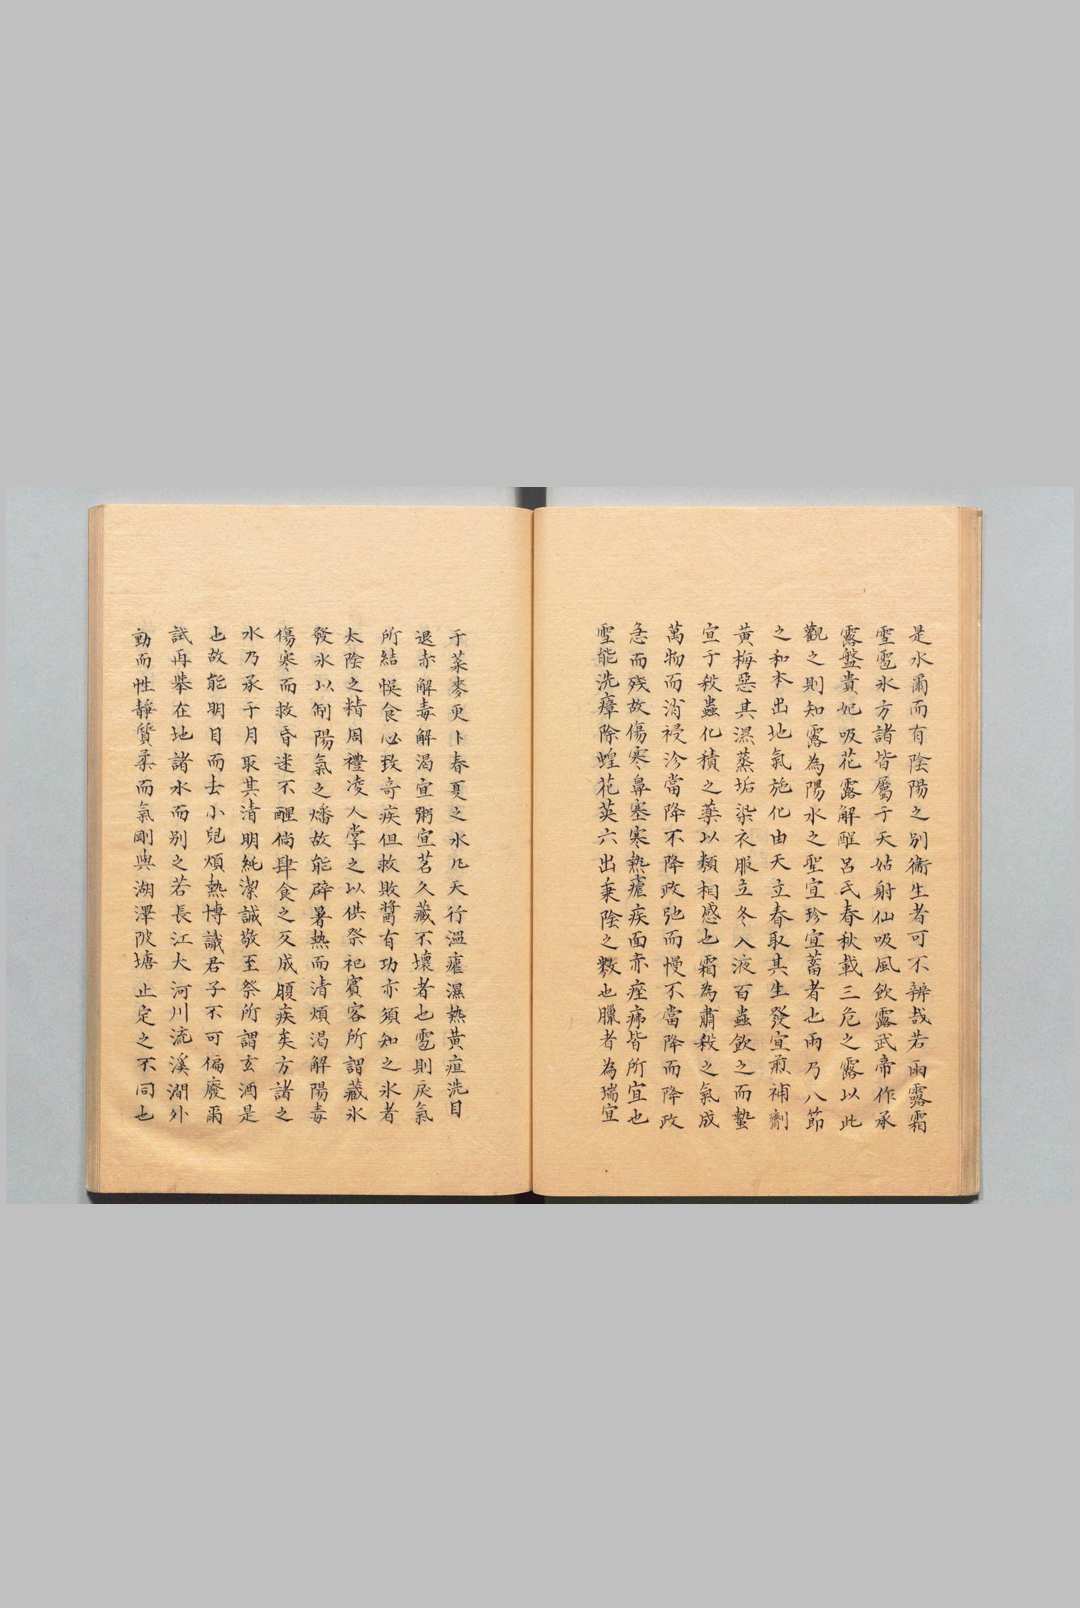 是水爾而有陰陽之別衛生者可不辨哉若雨露霜
雪雹氷方諸皆屬于天姑射仙吸風飲露武帝作承
露盤貴妃吸花露解酲呂氏春秋載三危之露以此
觀之則知露為陽水之聖宜珍宜蓄者也雨乃八節
之和本出地氣施化由天立春取其生發宜煎補劑
黃梅惡其濕蒸垢染衣服立冬入液百蟲飲之而蟄
宜于殺蟲化積之藥以類相感也霜為肅殺之氣成
萬物而消祲沴當降不降政弛而慢不當降而降政
急而殘故傷寒鼻塞寒熱瘧疾面赤痤疿皆所宜也
雪能洗瘴除蝗花英六出秉陰之數也臘者為瑞宜
于菜麥更卜春夏之水凡天行溫瘟濕熱黃疸洗目
退赤解毒解渴宜粥宜茗久藏不壞者也雹則戾氣
所結悞食必致奇疾但救敗醬有功亦須知之氷者
太陰之精周禮凌人掌之以供祭祀賓客所謂藏氷
發氷以制陽氣之燔故能辟暑熱而清煩渴解陽毒
傷寒而救昏迷不醒倘肆食之反成腹疾矣方諸之
水乃承于月取其清明純潔誠敬至祭所謂玄酒是
也故能明目而去小兒煩熱博識君子不可偏廢爾
試再舉在地諸水而別之若長江大河川流溪澗外
動而性靜質柔而氣剛與湖澤陂塘止定之不同也